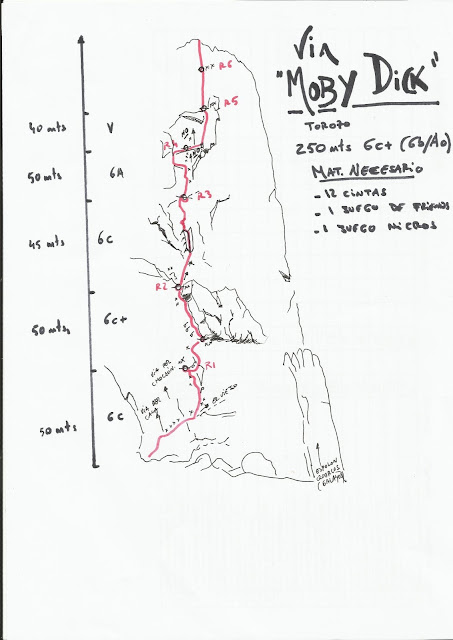 Via
"MOBY DICK"
TOROZO
250 mts 6c+ (6b/Ao)
MAT. NECESARIO
- 12 CINTAS
- 1 JUEGO DE FRIENDS
- 1 JUEGO MICROS
R6
R5
40 mts V
R4
50 mts 6A
R3
45 mts 6c
R2
50 mts 6c+
R1
VIA DEL
VIA DEL
EL VIEJO
50 mts 6c
ESPOLON